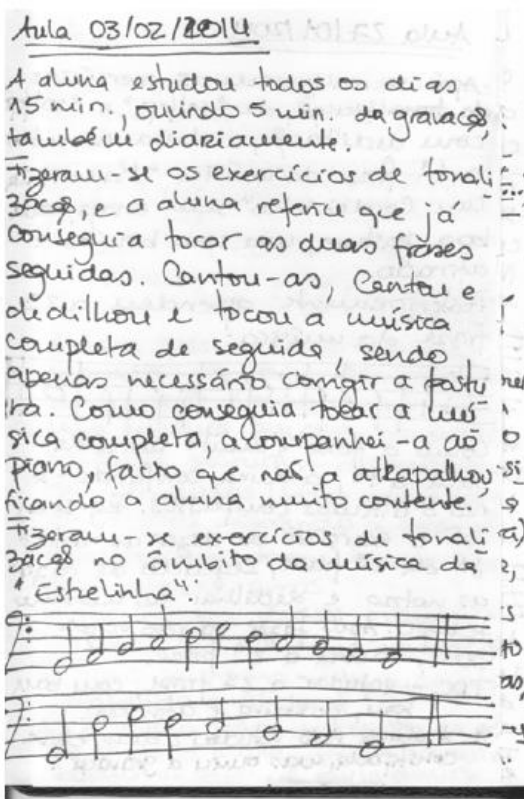 Aula 03/02/2014
A aluna estudou todos os dias
15 min., ouvindo 5 min. da gravação,
também diariamente.
Fizeram-se os exercícios de tonali
zação, e a aluna referiu que já
conseguia tocar as duas frases
seguidas. Cantou-as, Cantou e
dedilhou e tocou a música
completa de seguida, sendo
apenas necessário corrigir a postu
ra. Como conseguia tocar a mú
sica completa, acompanhei-a ao
piano, facto que não a atrapalhou
ficando a aluna muito contente.
Fizeram-se exercícios de tonali
zação no âmbito da música da
"Estrelinha".